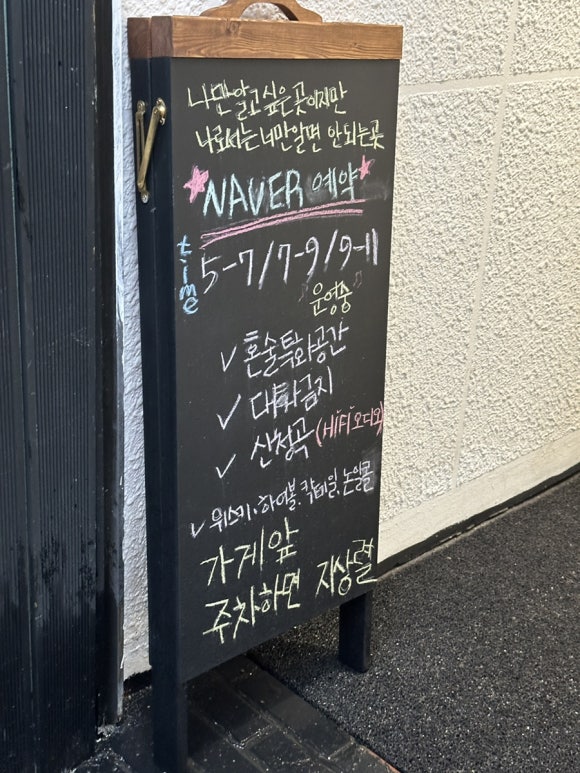 나만 알고 싶은 곳이지만
나로서는 너만 알면 안되는곳
NAVER 예약
time
5-7/7-9/9-11
운영중
✓ 혼술특화공간
✓ 대화금지
✓ 신청곡 (HiFi 오디오)
✓ 위스키, 하이볼, 칵테일, 논알콜
가게앞
주차하면 지상렬